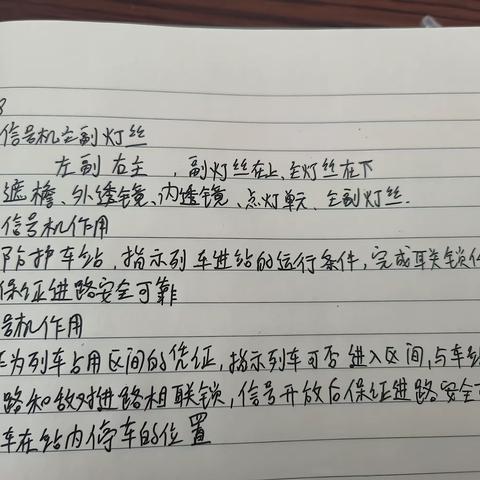 信号机主副灯丝
左副 右主 ,副灯丝在上,主灯丝在下
遮檐、外透镜、内透镜、点灯单元、主副灯丝.
信号机作用
防护车站,指示列车进站的运行条件,完成联锁
保证进路安全可靠
号机作用
为列车占用区间的凭证,指示列车可否进入区间,与车站
路和敌对进路相联锁,信号开放后保证进路安全可
车在站内停车的位置